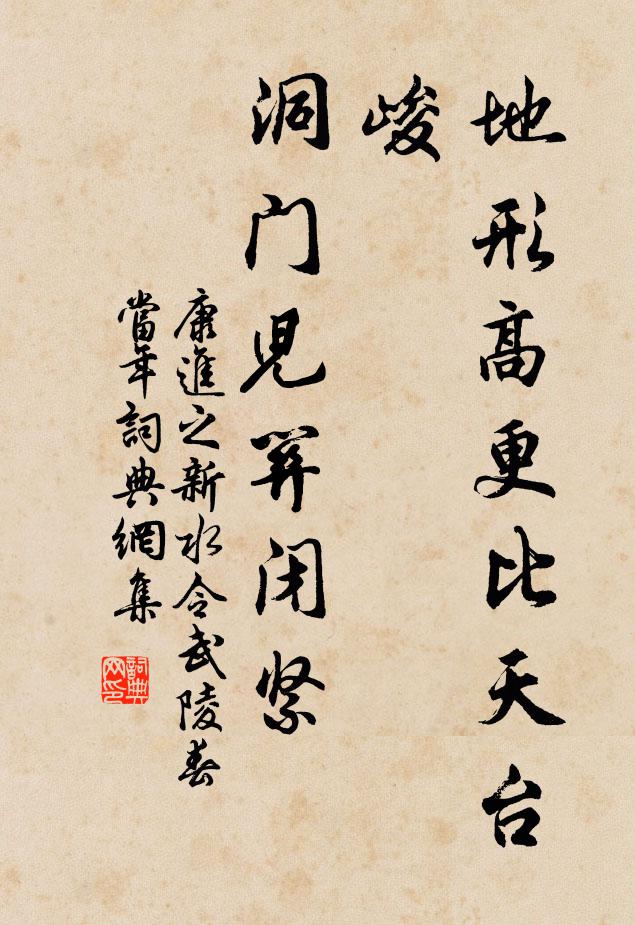 地形高更比天台
峻
洞门兒关闭紧
康進之新水令武陵春
當年詞典網集
詞典
网印